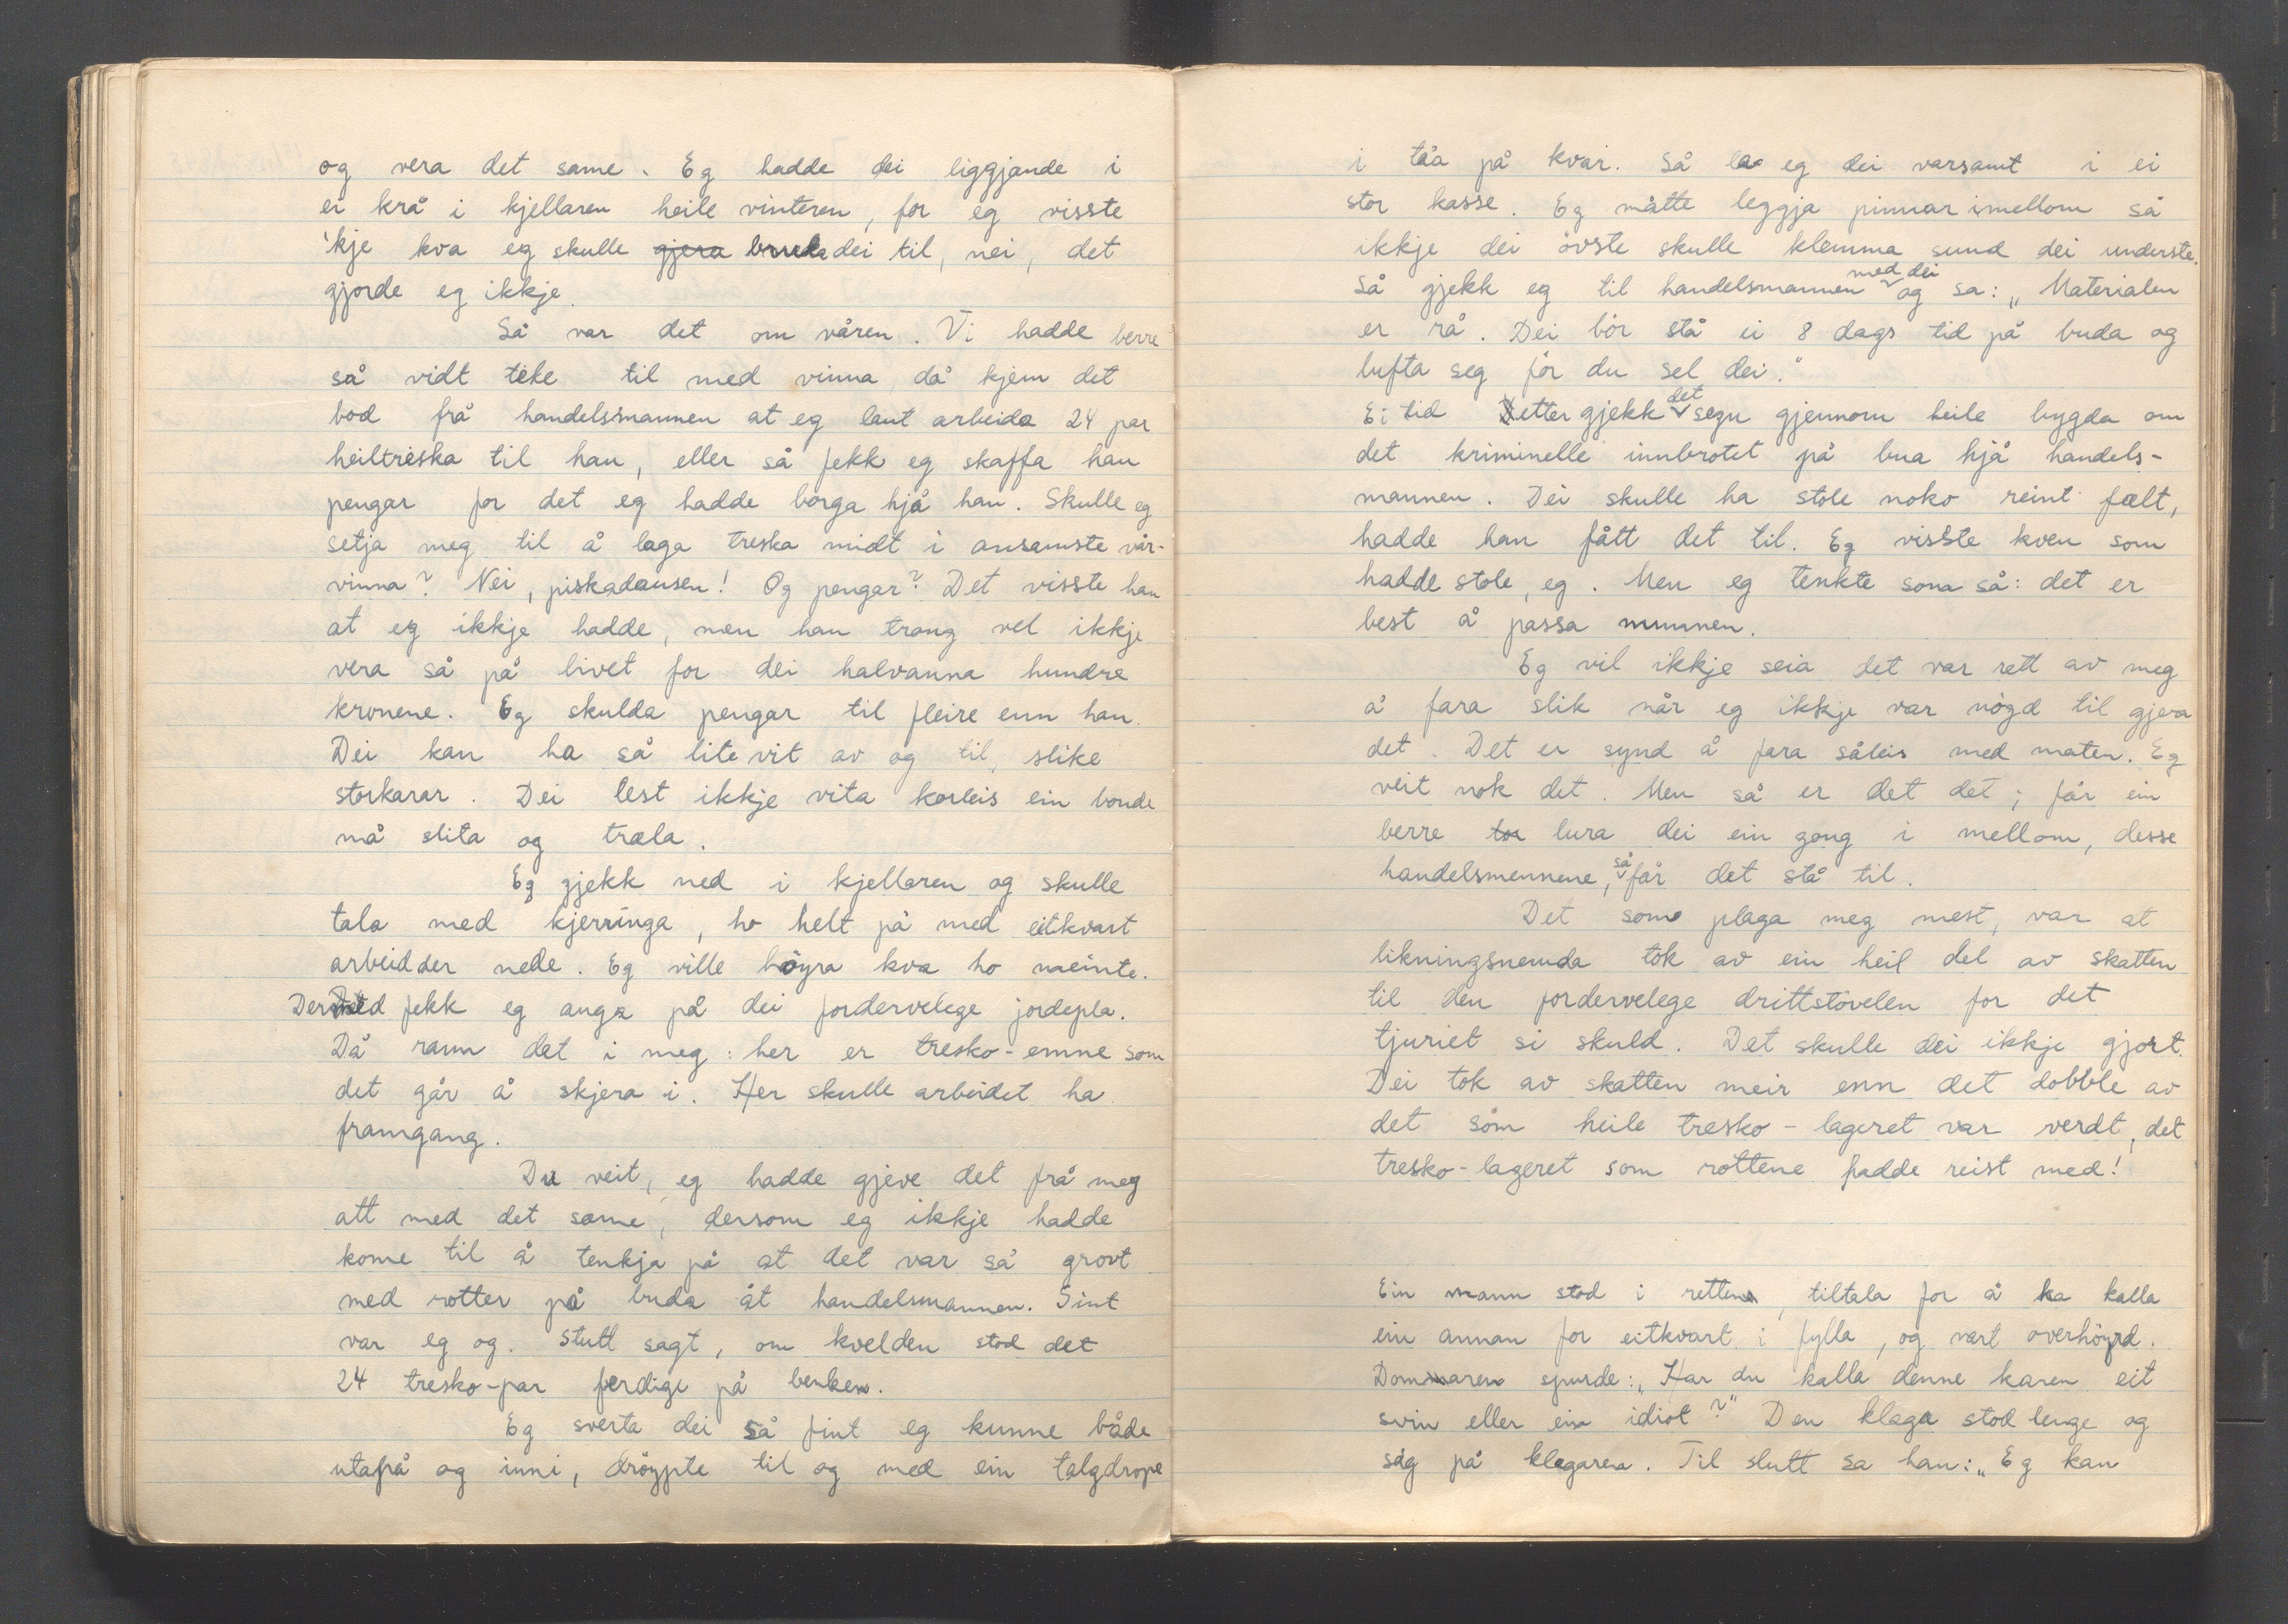 og vera det same. Eg hadde dei liggjande i
ei krå i kjellaren heile vinteren, for eg visste
'kje kva eg skulle gjera bruka dei til, nei, det
gjorde eg ikkje.
Så var det om våren. Vi hadde berre
så vidt teke til med vinna, då kjem det
bod frå handelsmannen at eg laut arbeida 24 par
heiltreska til han, eller så fekk eg skaffa han
pengar for det eg hadde borga hjå han. Skulle eg
setja meg til å laga treska midt i ansamste vår-
vinna? Nei, piskadausen! Og pengar? Det visste han
at eg ikkje hadde, men han trong vel ikkje
vera så på livet for dei halvanna hundre
kronene. Eg skulda pengar til fleire enn han.
Dei kan ha så lite vit av og til, slike
storkarar. Dei lest ikkje vita korleis ein bonde
må slita og træla.
Eg gjekk ned i kjellaren og skulle
tala med kjerringa, ho helt på med eitkvart
arbeid der nede. Eg ville höyra kva ho meinte.
Dermed fekk eg anga på dei fordervelege jordepla.
Då rann det i meg: her er tresko-emne som
det går å skjera i. Her skulle arbeidet ha
framgang.
Du veit, eg hadde gjeve det frå meg
att med det same, dersom eg ikkje hadde
kome til å tenkja på at det var så grovt
med rotter på buda åt handelsmannen. Sint
var eg og. Stutt sagt, om kvelden stod det
24 tresko-par ferdige på benken.
Eg sverta dei så fint eg kunne både
utapå og inni, dröypte til og med ein talgdrope
i tåa på kvar. Så la eg dei varsamt i ei
stor kasse. Eg måtte leggja pinnar imellom så
ikkje dei övste skulle klemma sund dei underste.
Så gjekk eg til handelsmannen med dei og sa: „Materialen
er rå. Dei bör stå ei 8 dags tid på buda og
lufta seg för du sel dei."
Ei tid etter gjekk det segn gjennom heile bygda om
det kriminelle innbrotet på bua hjå handels-
mannen. Dei skulle ha stole noko reint fælt,
hadde han fått det til. Eg visste kven som
hadde stole, eg. Men eg tenkte som så: det er
best å passa munnen.
Eg vil ikkje seia det var rett av meg
å fara slik når eg ikkje var nögd til gjera
det. Det er synd å fara såleis med maten. Eg
veit nok det. Men så er det det; får ein
berre lura dei ein gong i mellom, desse
handelsmennene, så får det stå til.
Det som plaga meg mest, var at
likningsnemda tok av ein heil del av skatten
til den fordervelege drittstövelen for det
tjuriet si skuld. Det skulle dei ikkje gjort.
Dei tok av skatten meir enn det dobble av
det som heile tresko-lageret var verdt, det
tresko-lageret som rottene hadde reist med!
Ein mann stod i retten, tiltala for å ha kalla
ein annan for eitkvart i fylla, og vart overhöyrd.
Domaren spurde: „Har du kalla denne karen eit
svin eller ein idiot?" Den klaga stod lenge og
såg på klagaren. Til slutt sa han: „Eg kan